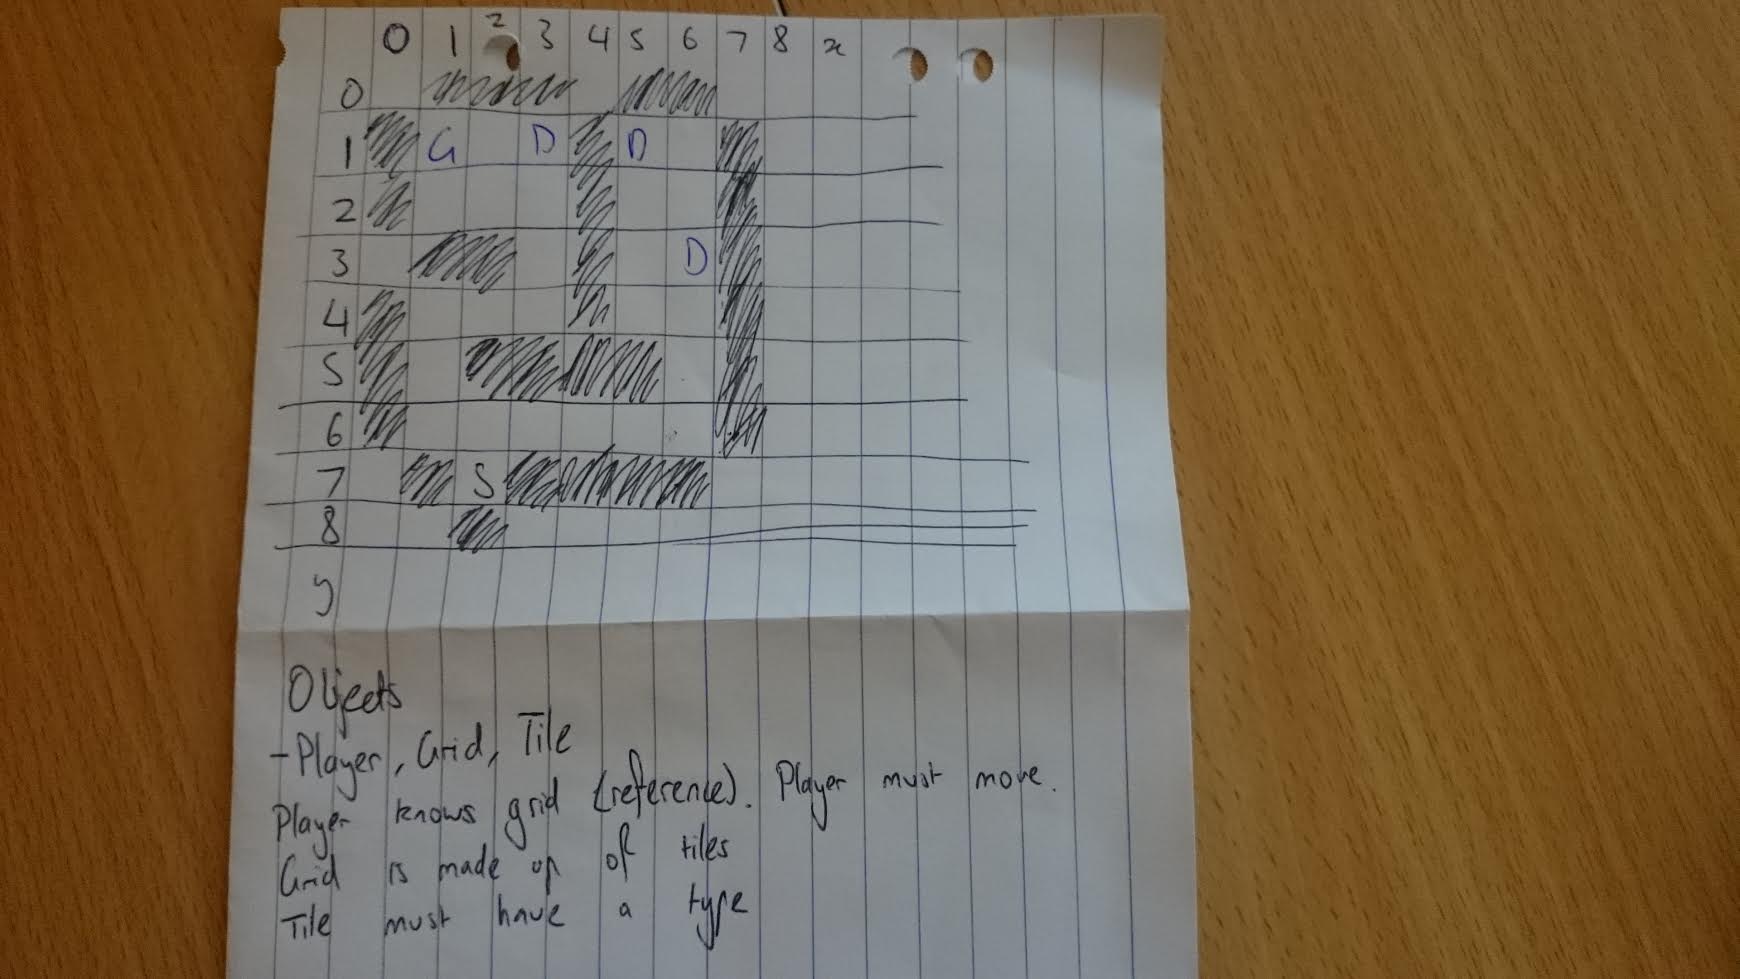 0 1 2 3 4 5 6 7 8 x
0
1 G D D
2
3 D
4
5
6
7 S
8
y
Objects
- Player, Grid, Tile
Player knows grid (reference). Player must move.
Grid is made up of tiles
Tile must have a type